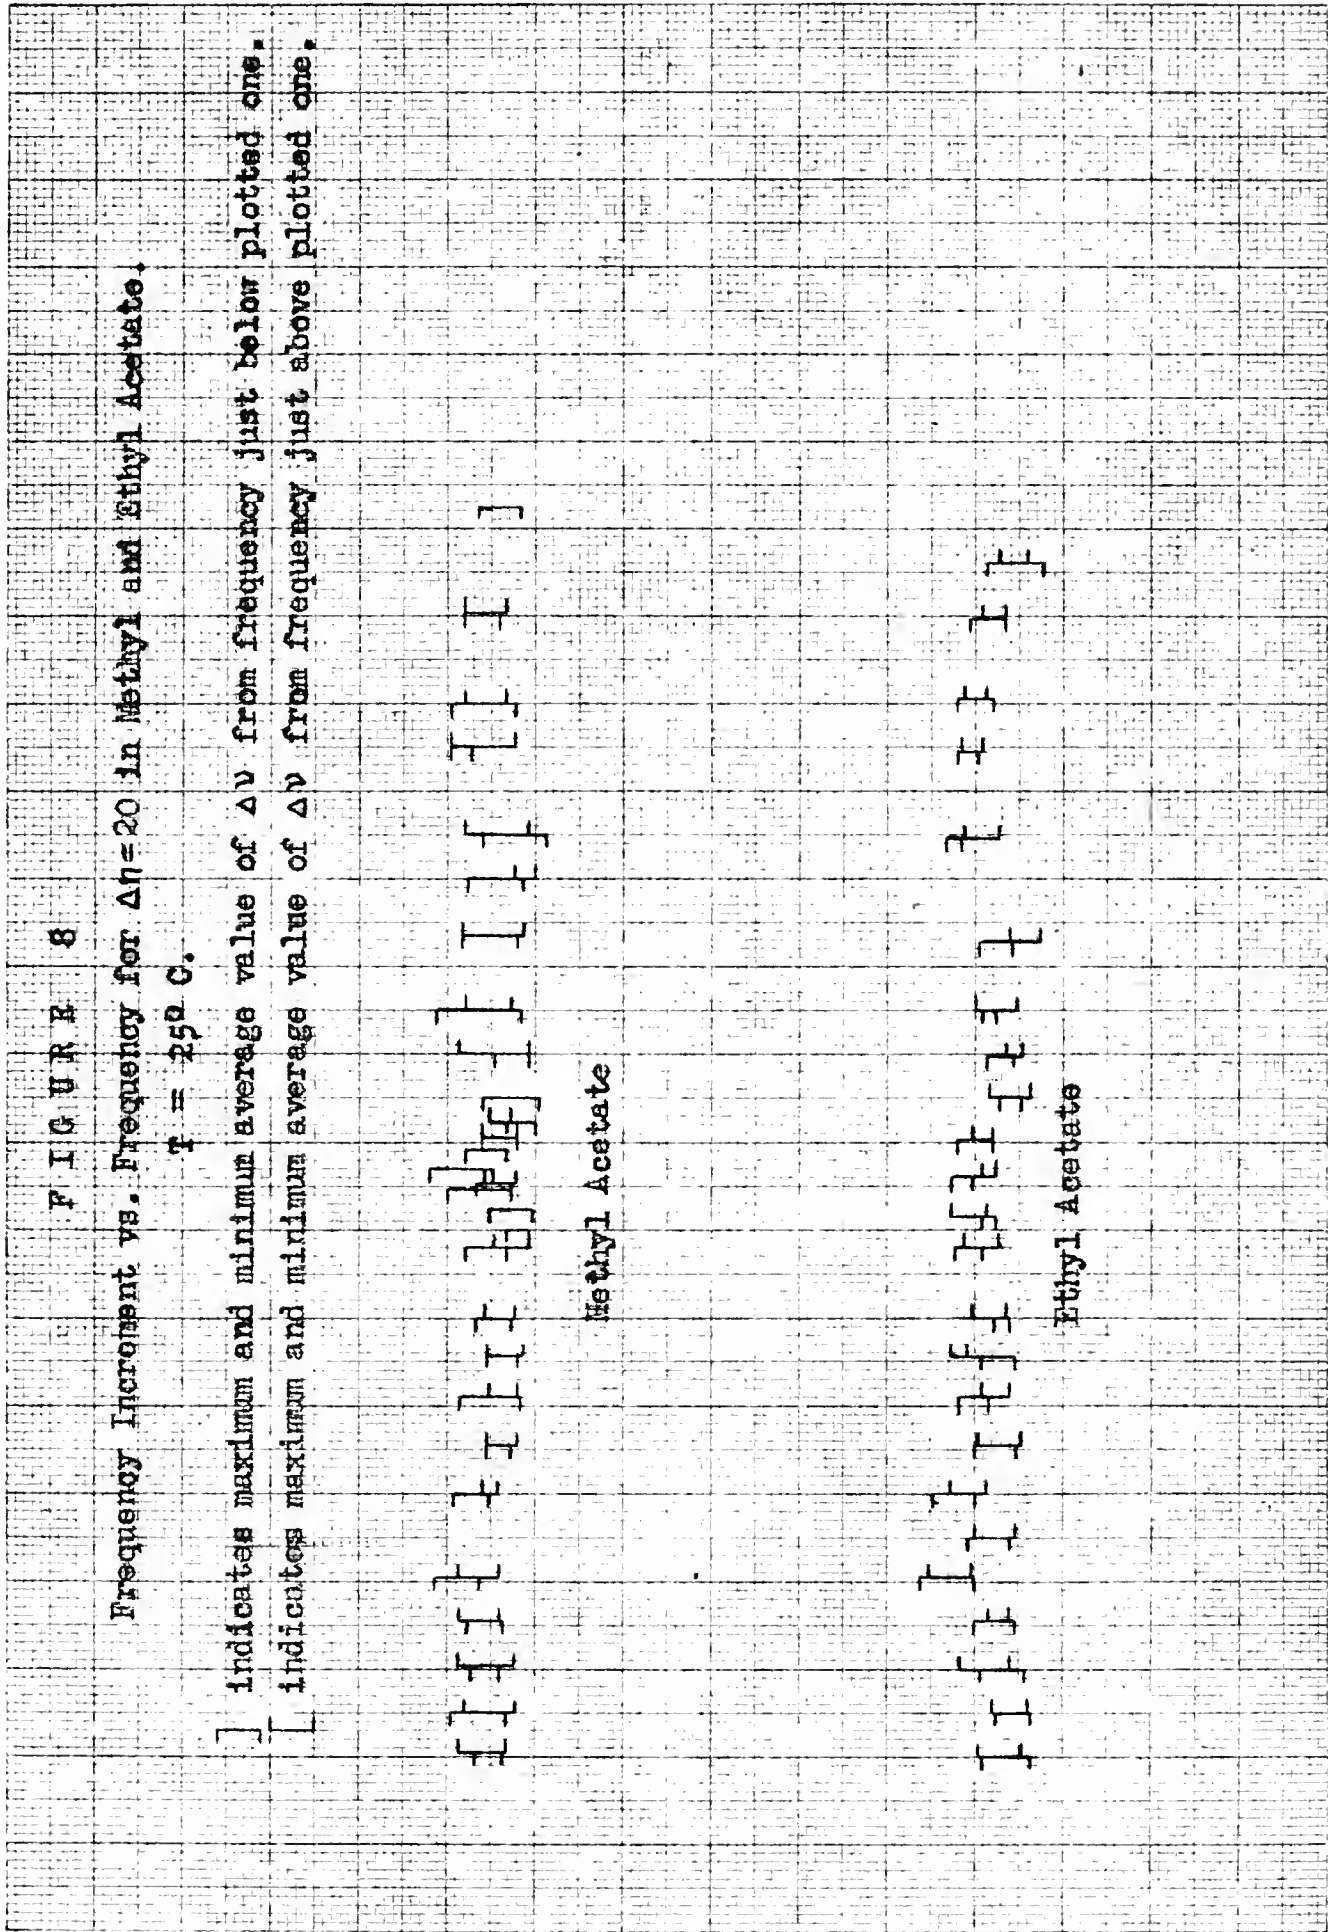 FIGURE 8
Frequency Increment vs. Frequency for Δn=20 in Methyl and Ethyl Acetate.
T = 25° C.
] indicates maximum and minimum average value of Δν from frequency just below plotted one.
[ indicates maximum and minimum average value of Δν from frequency just above plotted one.
Methyl Acetate
Ethyl Acetate